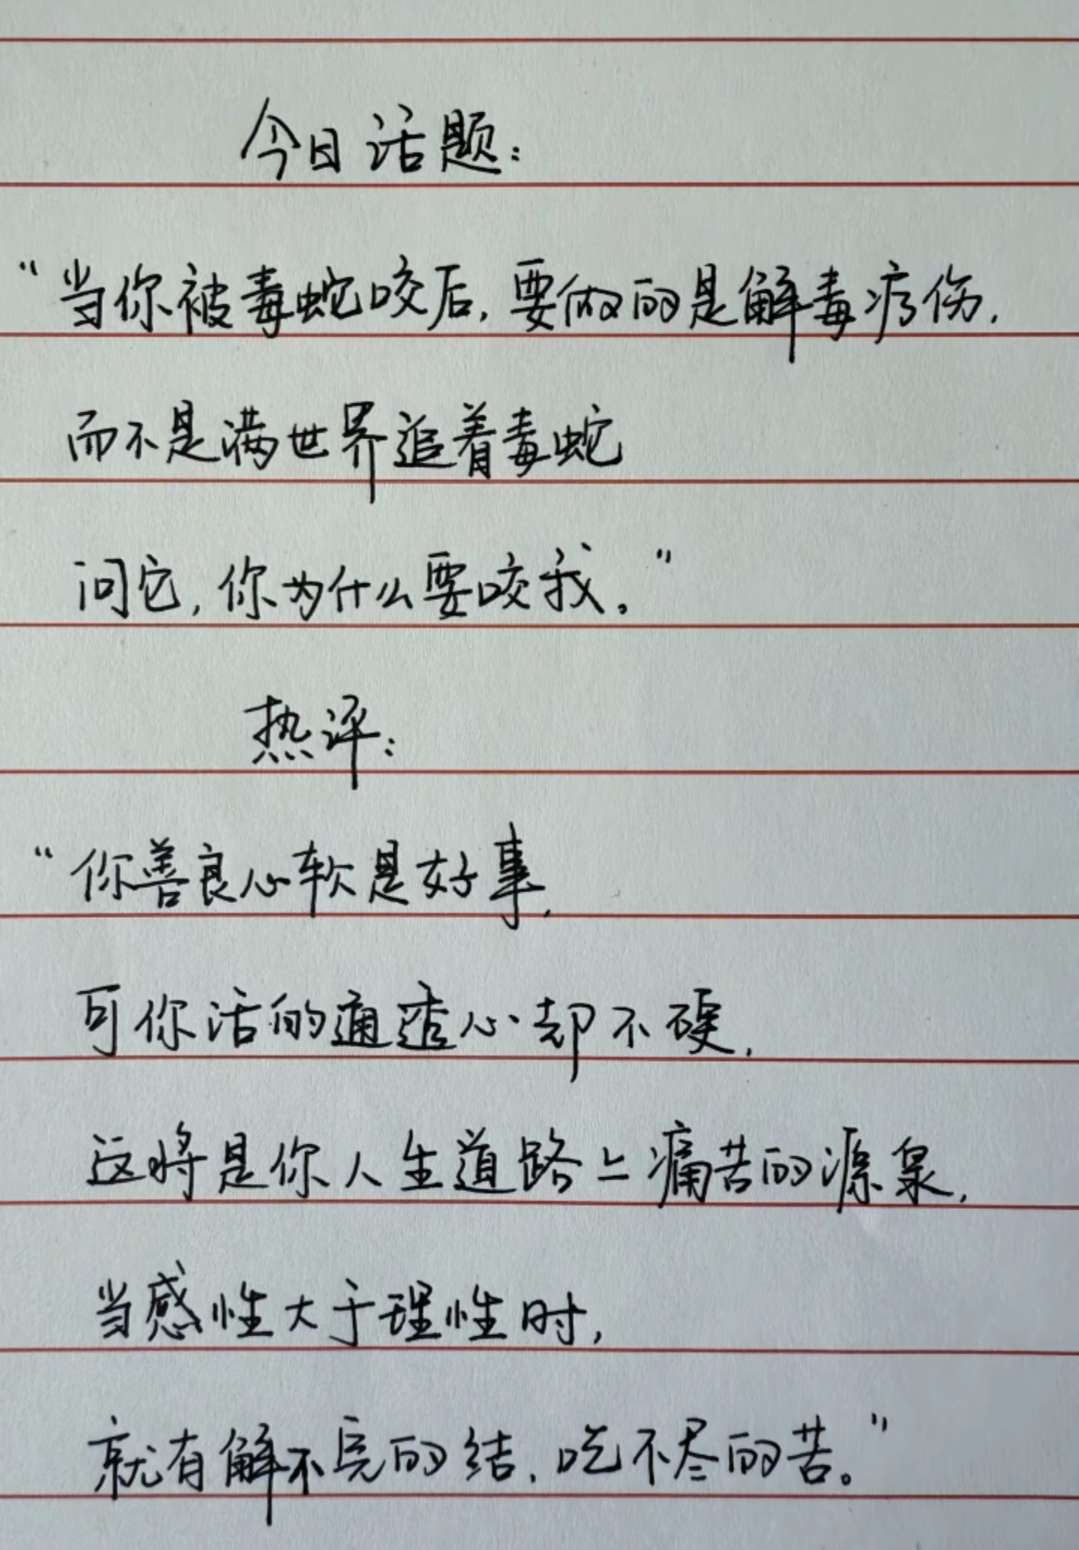 今日话题:
“当你被毒蛇咬后,要做的是解毒疗伤,
而不是满世界追着毒蛇
问它,你为什么要咬我。”
热评:
“你善良心软是好事,
可你活的通透心却不硬,
这将是你人生道路上痛苦的源泉,
当感性大于理性时,
就有解不完的结,吃不尽的苦。”